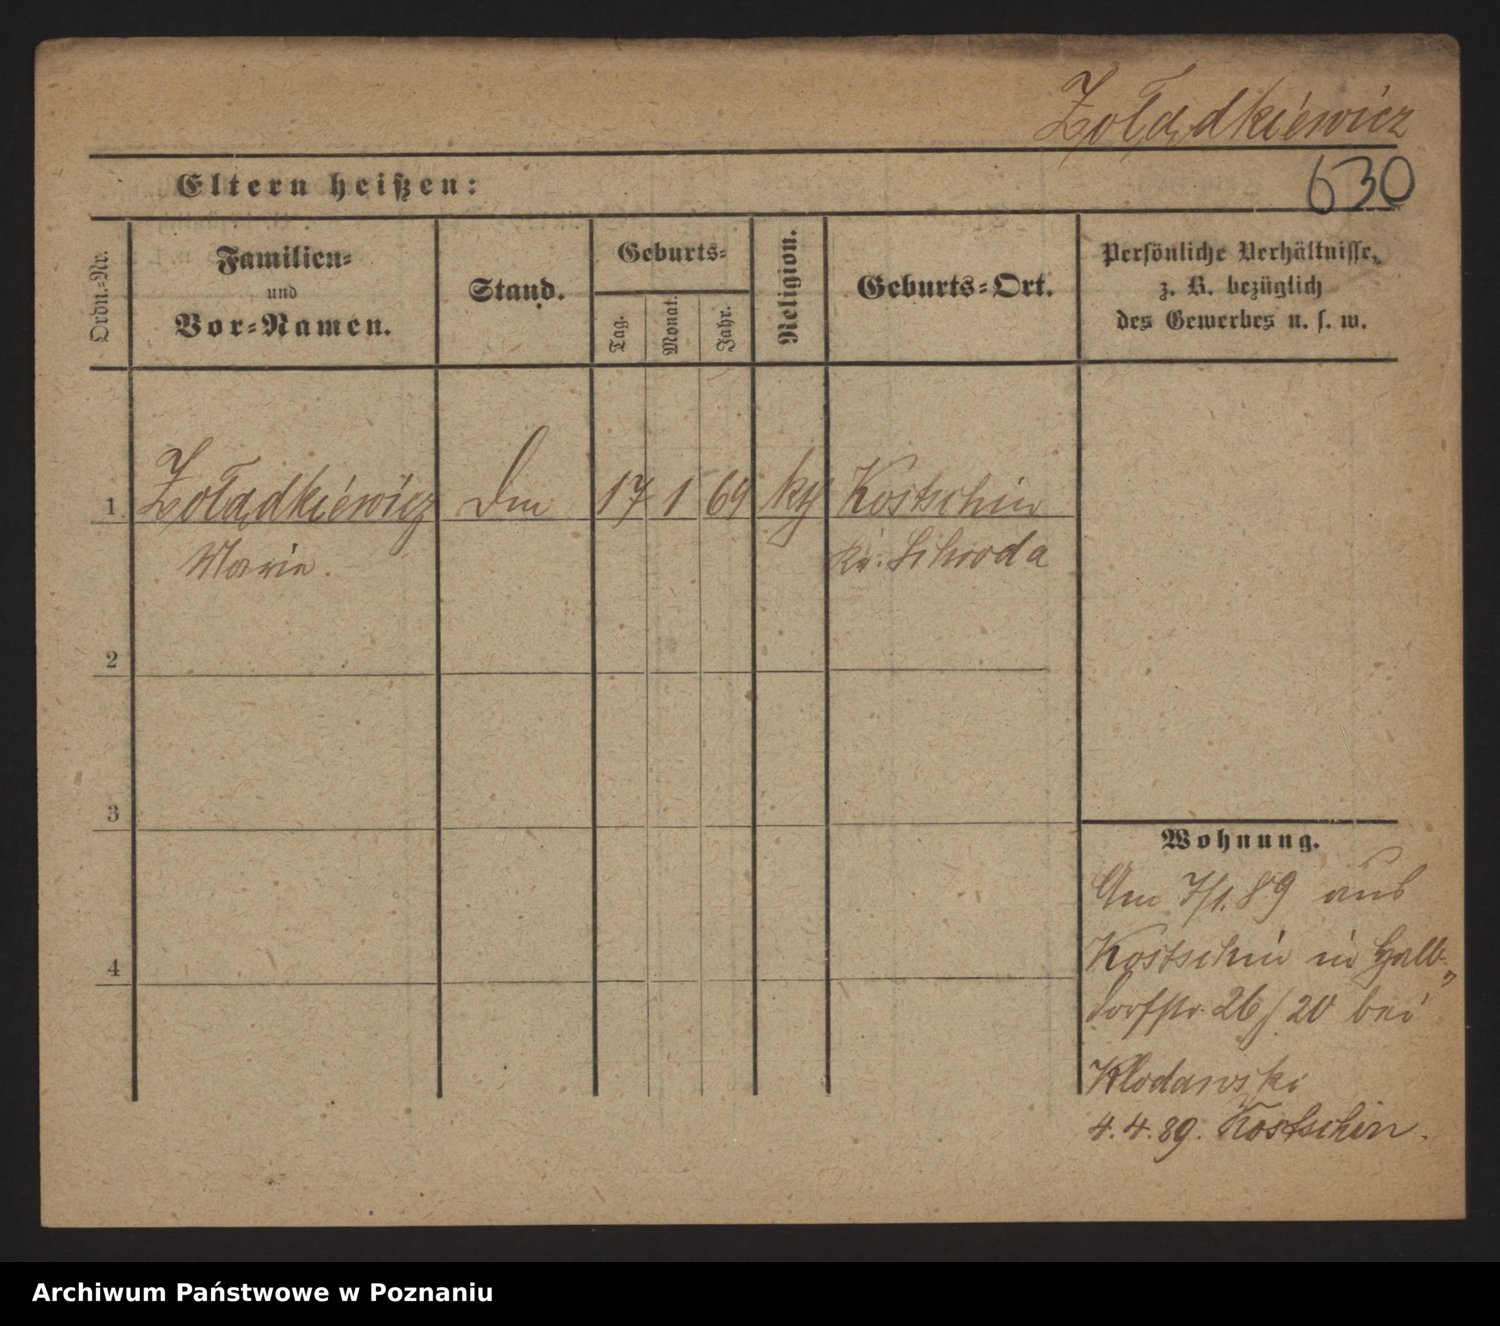 Zołądkiewicz
630
Eltern heißen:
Ordn.-Nr.
Familien-
und
Vor-Namen.
Stand.
Geburts-
Tag.
Monat.
Jahr.
Religion.
Geburts-Ort.
Persönliche Verhältnisse,
z. B. bezüglich
des Gewerbes u. s. w.
1 Zołądkiewicz 17 1 69 Kostschin
Marie
Kr. Schroda
2
3
4
Wohnung.
Am 7/1.89 aus
Kostschin in Halb-
dorfstr. 26/20 bei
Klodawski
4.4.89. Kostschin.
Archiwum Państwowe w Poznaniu